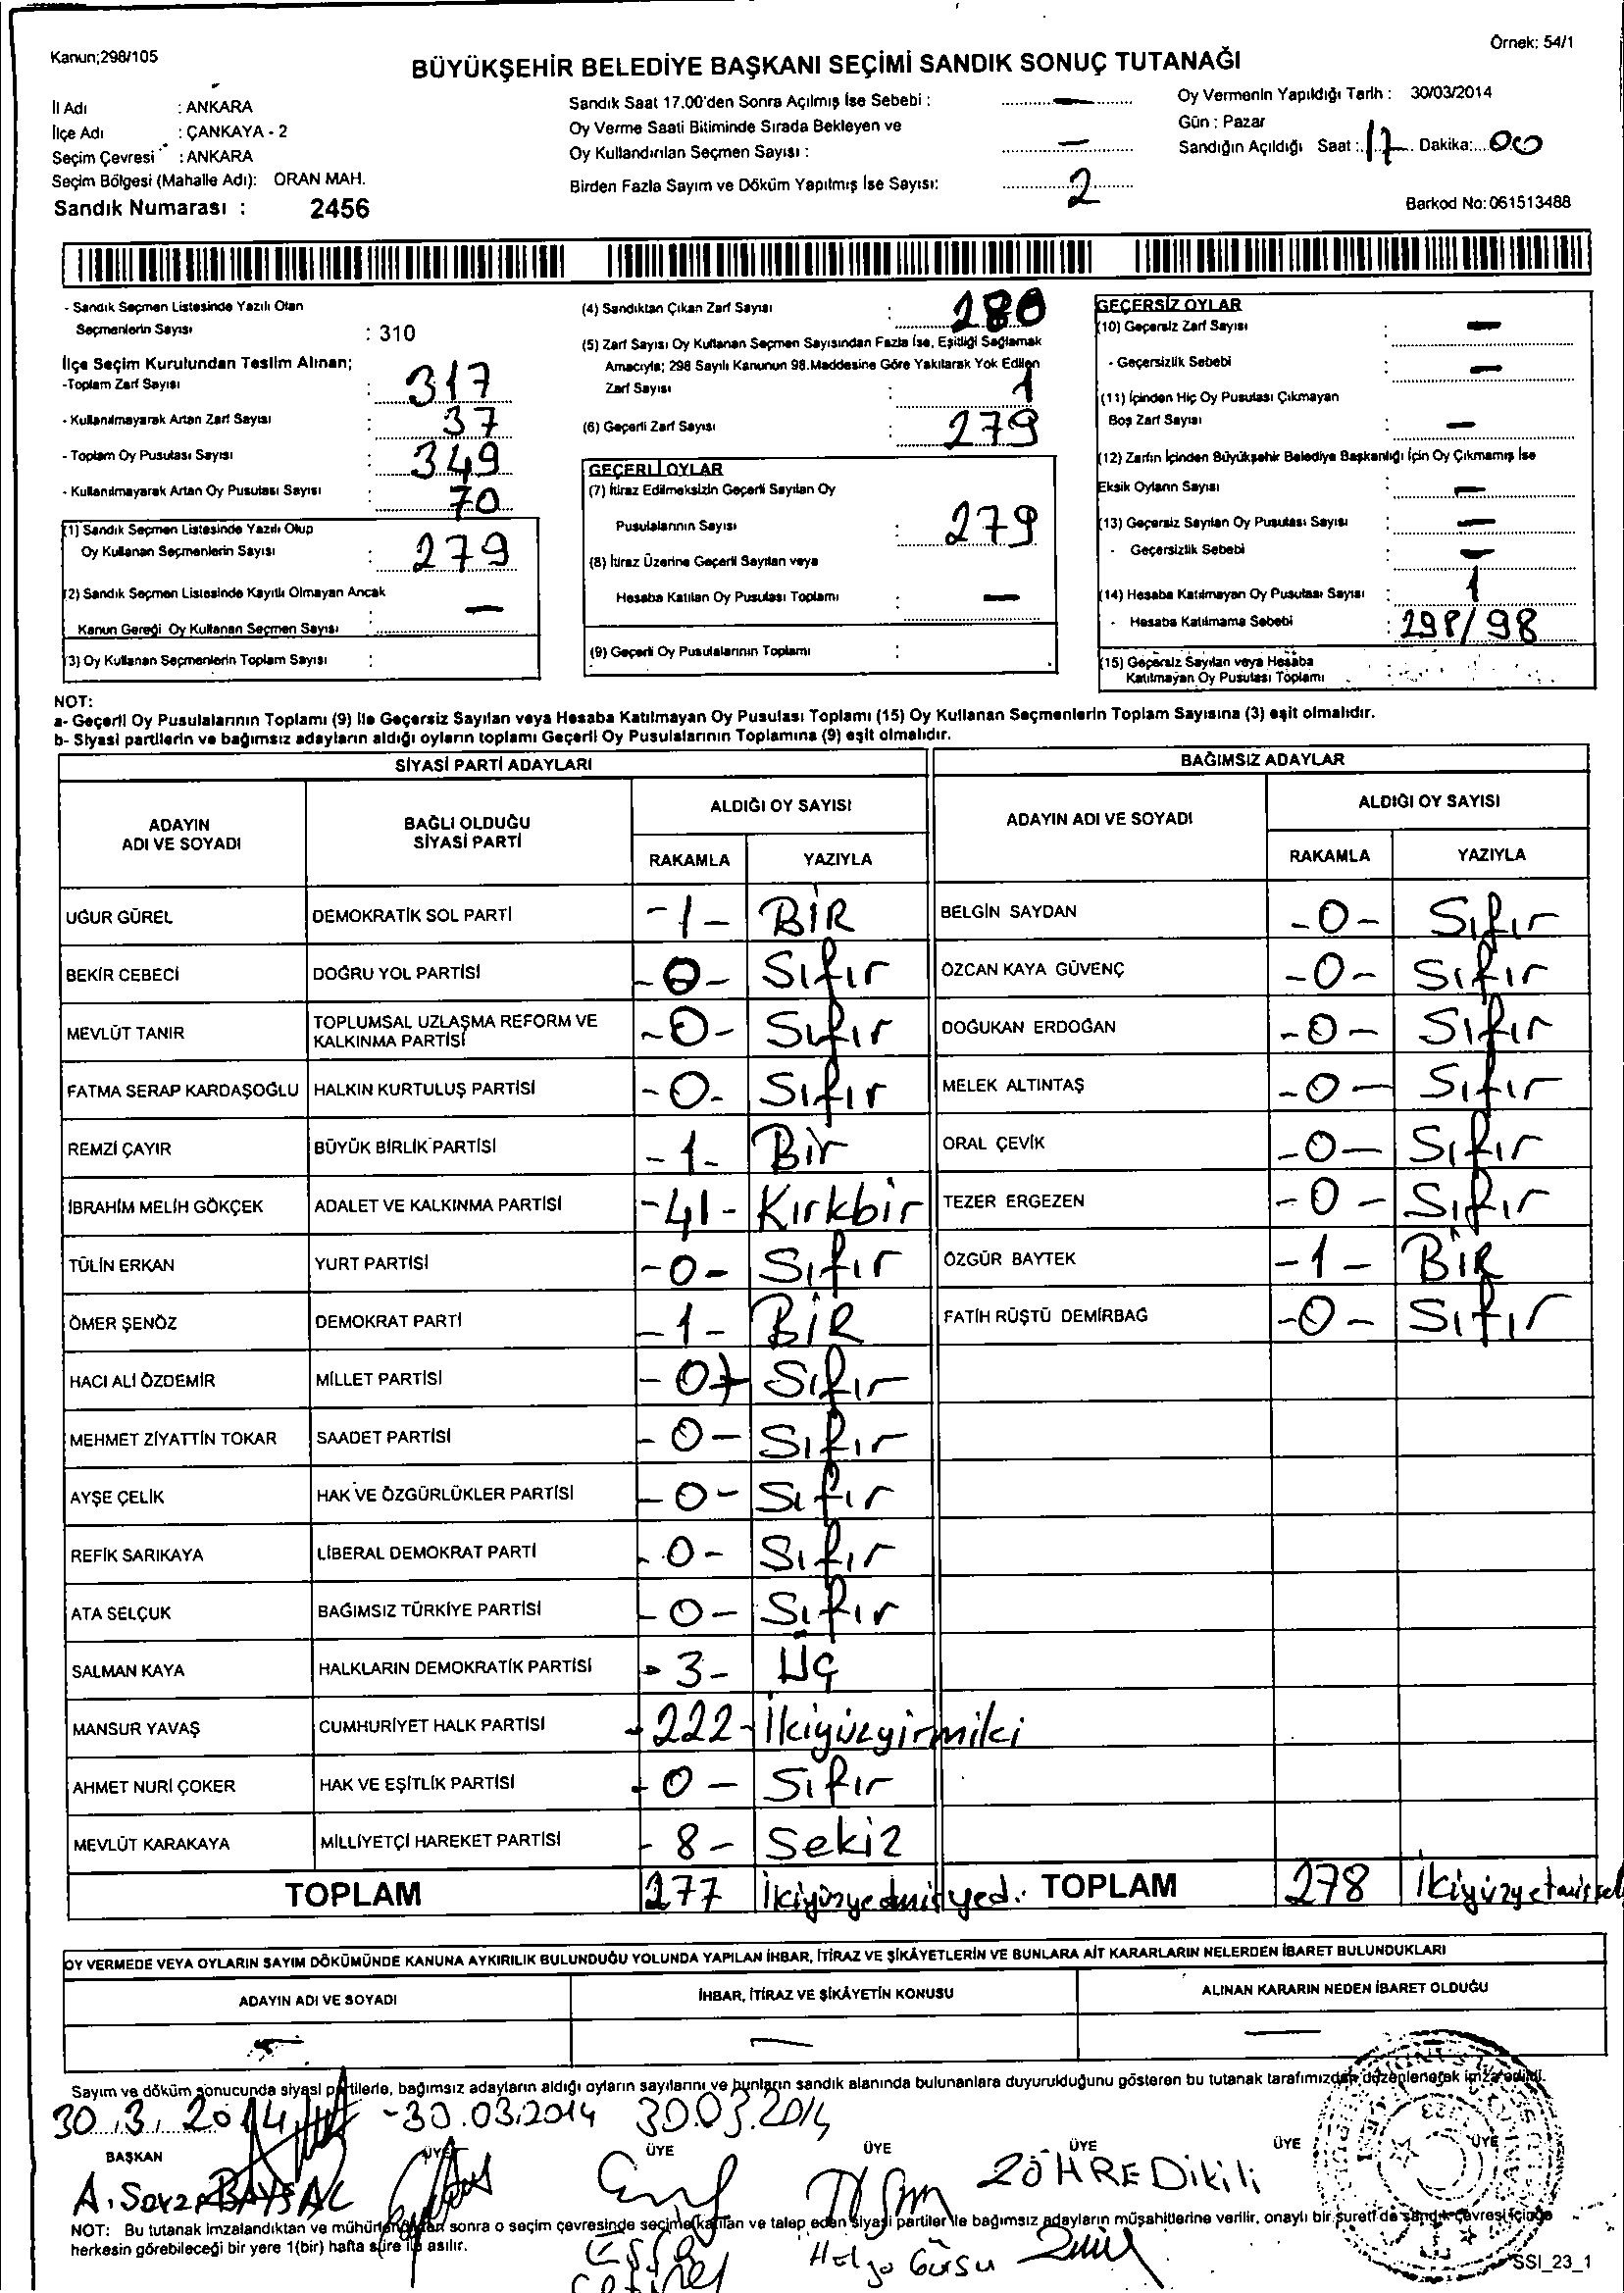 Kanun;298/105
Örnek: 54/1
BÜYÜKŞEHİR BELEDİYE BAŞKANI SEÇİMİ SANDIK SONUÇ TUTANAĞI
İl Adı : ANKARA
İlçe Adı : ÇANKAYA - 2
Seçim Çevresi : ANKARA
Seçim Bölgesi (Mahalle Adı): ORAN MAH.
Sandık Numarası : 2456
Sandık Saat 17.00'den Sonra Açılmış İse Sebebi : —
Oy Verme Saati Bitiminde Sırada Bekleyen ve
Oy Kullandırılan Seçmen Sayısı : —
Birden Fazla Sayım ve Döküm Yapılmış İse Sayısı: 2
Oy Vermenin Yapıldığı Tarih : 30/03/2014
Gün : Pazar
Sandığın Açıldığı Saat : 17 Dakika: 00
Barkod No: 061513488
- Sandık Seçmen Listesinde Yazılı Olan
Seçmenlerin Sayısı : 310
İlçe Seçim Kurulundan Teslim Alınan;
-Toplam Zarf Sayısı : 317
- Kullanılmayarak Artan Zarf Sayısı : 37
- Toplam Oy Pusulası Sayısı : 349
- Kullanılmayarak Artan Oy Pusulası Sayısı : 70
(1) Sandık Seçmen Listesinde Yazılı Olup
Oy Kullanan Seçmenlerin Sayısı : 279
(2) Sandık Seçmen Listesinde Kayıtlı Olmayan Ancak
Kanun Gereği Oy Kullanan Seçmen Sayısı : —
(3) Oy Kullanan Seçmenlerin Toplam Sayısı :
(4) Sandıktan Çıkan Zarf Sayısı : 280
(5) Zarf Sayısı Oy Kullanan Seçmen Sayısından Fazla İse, Eşitliği Sağlamak
Amacıyla; 298 Sayılı Kanunun 98.Maddesine Göre Yakılarak Yok Edilen
Zarf Sayısı : 1
(6) Geçerli Zarf Sayısı : 279
GEÇERLİ OYLAR
(7) İtiraz Edilmeksizin Geçerli Sayılan Oy
Pusulalarının Sayısı : 279
(8) İtiraz Üzerine Geçerli Sayılan veya
Hesaba Katılan Oy Pusulası Toplamı : —
(9) Geçerli Oy Pusulalarının Toplamı :
GEÇERSİZ OYLAR
(10) Geçersiz Zarf Sayısı : —
- Geçersizlik Sebebi : —
(11) İçinden Hiç Oy Pusulası Çıkmayan
Boş Zarf Sayısı : —
(12) Zarfın İçinden Büyükşehir Belediye Başkanlığı İçin Oy Çıkmamış İse
Eksik Oyların Sayısı : —
(13) Geçersiz Sayılan Oy Pusulası Sayısı : —
- Geçersizlik Sebebi : —
(14) Hesaba Katılmayan Oy Pusulası Sayısı : 1
- Hesaba Katılmama Sebebi : 298/98
(15) Geçersiz Sayılan veya Hesaba
Katılmayan Oy Pusulası Toplamı :
NOT:
a- Geçerli Oy Pusulalarının Toplamı (9) İle Geçersiz Sayılan veya Hesaba Katılmayan Oy Pusulası Toplamı (15) Oy Kullanan Seçmenlerin Toplam Sayısına (3) eşit olmalıdır.
b- Siyasi partilerin ve bağımsız adayların aldığı oyların toplamı Geçerli Oy Pusulalarının Toplamına (9) eşit olmalıdır.
SİYASİ PARTİ ADAYLARI
ADAYIN ADI VE SOYADI
BAĞLI OLDUĞU SİYASİ PARTİ
ALDIĞI OY SAYISI
RAKAMLA YAZIYLA
UĞUR GÜREL DEMOKRATİK SOL PARTİ -1- BİR
BEKİR CEBECİ DOĞRU YOL PARTİSİ -0- Sıfır
MEVLÜT TANIR TOPLUMSAL UZLAŞMA REFORM VE KALKINMA PARTİSİ -0- Sıfır
FATMA SERAP KARDAŞOĞLU HALKIN KURTULUŞ PARTİSİ -0- Sıfır
REMZİ ÇAYIR BÜYÜK BİRLİK PARTİSİ -1- Bir
İBRAHİM MELİH GÖKÇEK ADALET VE KALKINMA PARTİSİ -41- Kırkbir
TÜLİN ERKAN YURT PARTİSİ -0- Sıfır
ÖMER ŞENÖZ DEMOKRAT PARTİ -1- BİR
HACI ALİ ÖZDEMİR MİLLET PARTİSİ -0- Sıfır
MEHMET ZİYATTİN TOKAR SAADET PARTİSİ -0- Sıfır
AYŞE ÇELİK HAK VE ÖZGÜRLÜKLER PARTİSİ -0- Sıfır
REFİK SARIKAYA LİBERAL DEMOKRAT PARTİ -0- Sıfır
ATA SELÇUK BAĞIMSIZ TÜRKİYE PARTİSİ -0- Sıfır
SALMAN KAYA HALKLARIN DEMOKRATİK PARTİSİ -3- Üç
MANSUR YAVAŞ CUMHURİYET HALK PARTİSİ -222- İkiyüzyirmiiki
AHMET NURİ ÇOKER HAK VE EŞİTLİK PARTİSİ -0- Sıfır
MEVLÜT KARAKAYA MİLLİYETÇİ HAREKET PARTİSİ -8- Sekiz
TOPLAM 277
BAĞIMSIZ ADAYLAR
ADAYIN ADI VE SOYADI
ALDIĞI OY SAYISI
RAKAMLA YAZIYLA
BELGİN SAYDAN -0- Sıfır
ÖZCAN KAYA GÜVENÇ -0- Sıfır
DOĞUKAN ERDOĞAN -0- Sıfır
MELEK ALTINTAŞ -0- Sıfır
ORAL ÇEVİK -0- Sıfır
TEZER ERGEZEN -0- Sıfır
ÖZGÜR BAYTEK -1- BİR
FATİH RÜŞTÜ DEMİRBAĞ -0- Sıfır
TOPLAM 278
OY VERMEDE VEYA OYLARIN SAYIM DÖKÜMÜNDE KANUNA AYKIRILIK BULUNDUĞU YOLUNDA YAPILAN İHBAR, İTİRAZ VE ŞİKÂYETLERİN VE BUNLARA AİT KARARLARIN NELERDEN İBARET BULUNDUKLARI
ADAYIN ADI VE SOYADI İHBAR, İTİRAZ VE ŞİKÂYETİN KONUSU ALINAN KARARIN NEDEN İBARET OLDUĞU
— — —
Sayım ve döküm sonucunda siyasi partilerle, bağımsız adayların aldığı oyların sayılarını ve bunların sandık alanında bulunanlara duyurulduğunu gösteren bu tutanak tarafımızdan düzenlenerek imza edildi.
30.3.2014 -30.03.2014 30.03.2014
BAŞKAN ÜYE ÜYE ÜYE ÜYE ÜYE ÜYE
ZÖHRE Dikili
NOT: Bu tutanak imzalandıktan ve mühürlendikten sonra o seçim çevresinde seçime katılan ve talep eden siyasi partiler ile bağımsız adayların müşahitlerine verilir, onaylı bir sureti de sandık çevresi içinde
herkesin görebileceği bir yere 1(bir) hafta süre ile asılır.
SSI_23_1